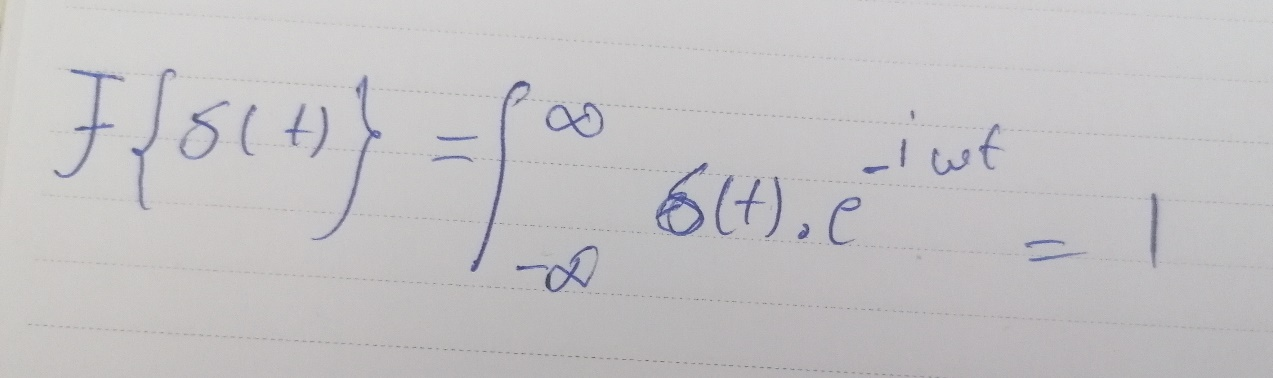 F{δ(t)} = ∫_{-∞}^{∞} δ(t).e^{-iωt} = 1